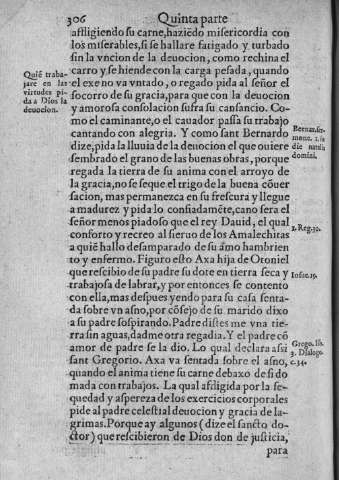 306 Quinta parte
affligiendo su carne, haziēdo misericordia con
los miserables, si se hallare fatigado y turbado
sin la vncion de la deuocion, como rechina el
carro y se hiende con la carga pesada, quando
Quiē traba-
jare en las
virtudes pi-
da a Dios la
deuocion.
el exe no va vntado, o regado pida al señor el
socorro de su gracia, para que con la deuocion
y amorosa consolacion sufra su cansancio. Co-
mo el caminante, o el cauador passa su trabajo
cantando con alegria. Y como sant Bernardo
Bernar. ser-
mone. 2. in
die natalis
domini.
dize, pida la lluuia de la deuociō el que ouiere
sembrado el grano de las buenas obras, porque
regada la tierra de su anima con el arroyo de
la gracia, no se seque el trigo de la buena cōuer
sacion, mas permanezca en su frescura y llegue
a madurez y pida lo confiadamēte, ca no sera el
señor menos piadoso que el rey Dauid, el qual
conforto y recreo al sieruo de los Amalechitas
2. Reg. 30.
a quiē hallo desamparado de su āmo hambrien
to y enfermo. Figuro esto Axa hija de Otoniel
que rescibio de su padre su dote en tierra seca y
Iosue. 15.
trabajosa de labrar, y por entonces se contento
con ella, mas despues yendo para su casa senta-
da sobre vn asno, por cōsejo de su marido dixo
a su padre sospirando. Padre distes me vna tie-
rra sin aguas, dadme otra regadia. Y el padre cō
amor de padre se la dio. Lo qual declara assi
Grego. lib.
3. Dialogo.
c. 34.
sant Gregorio. Axa va sentada sobre el asno,
quando el anima tiene su carne debaxo de si do
mada con trabajos. La qual afligida por la se-
quedad y aspereza de los exercicios corporales
pide al padre celestial deuocion y gracia de la-
grimas. Porque ay algunos (dize el sancto do-
ctor) que rescibieron de Dios don de justicia,
para